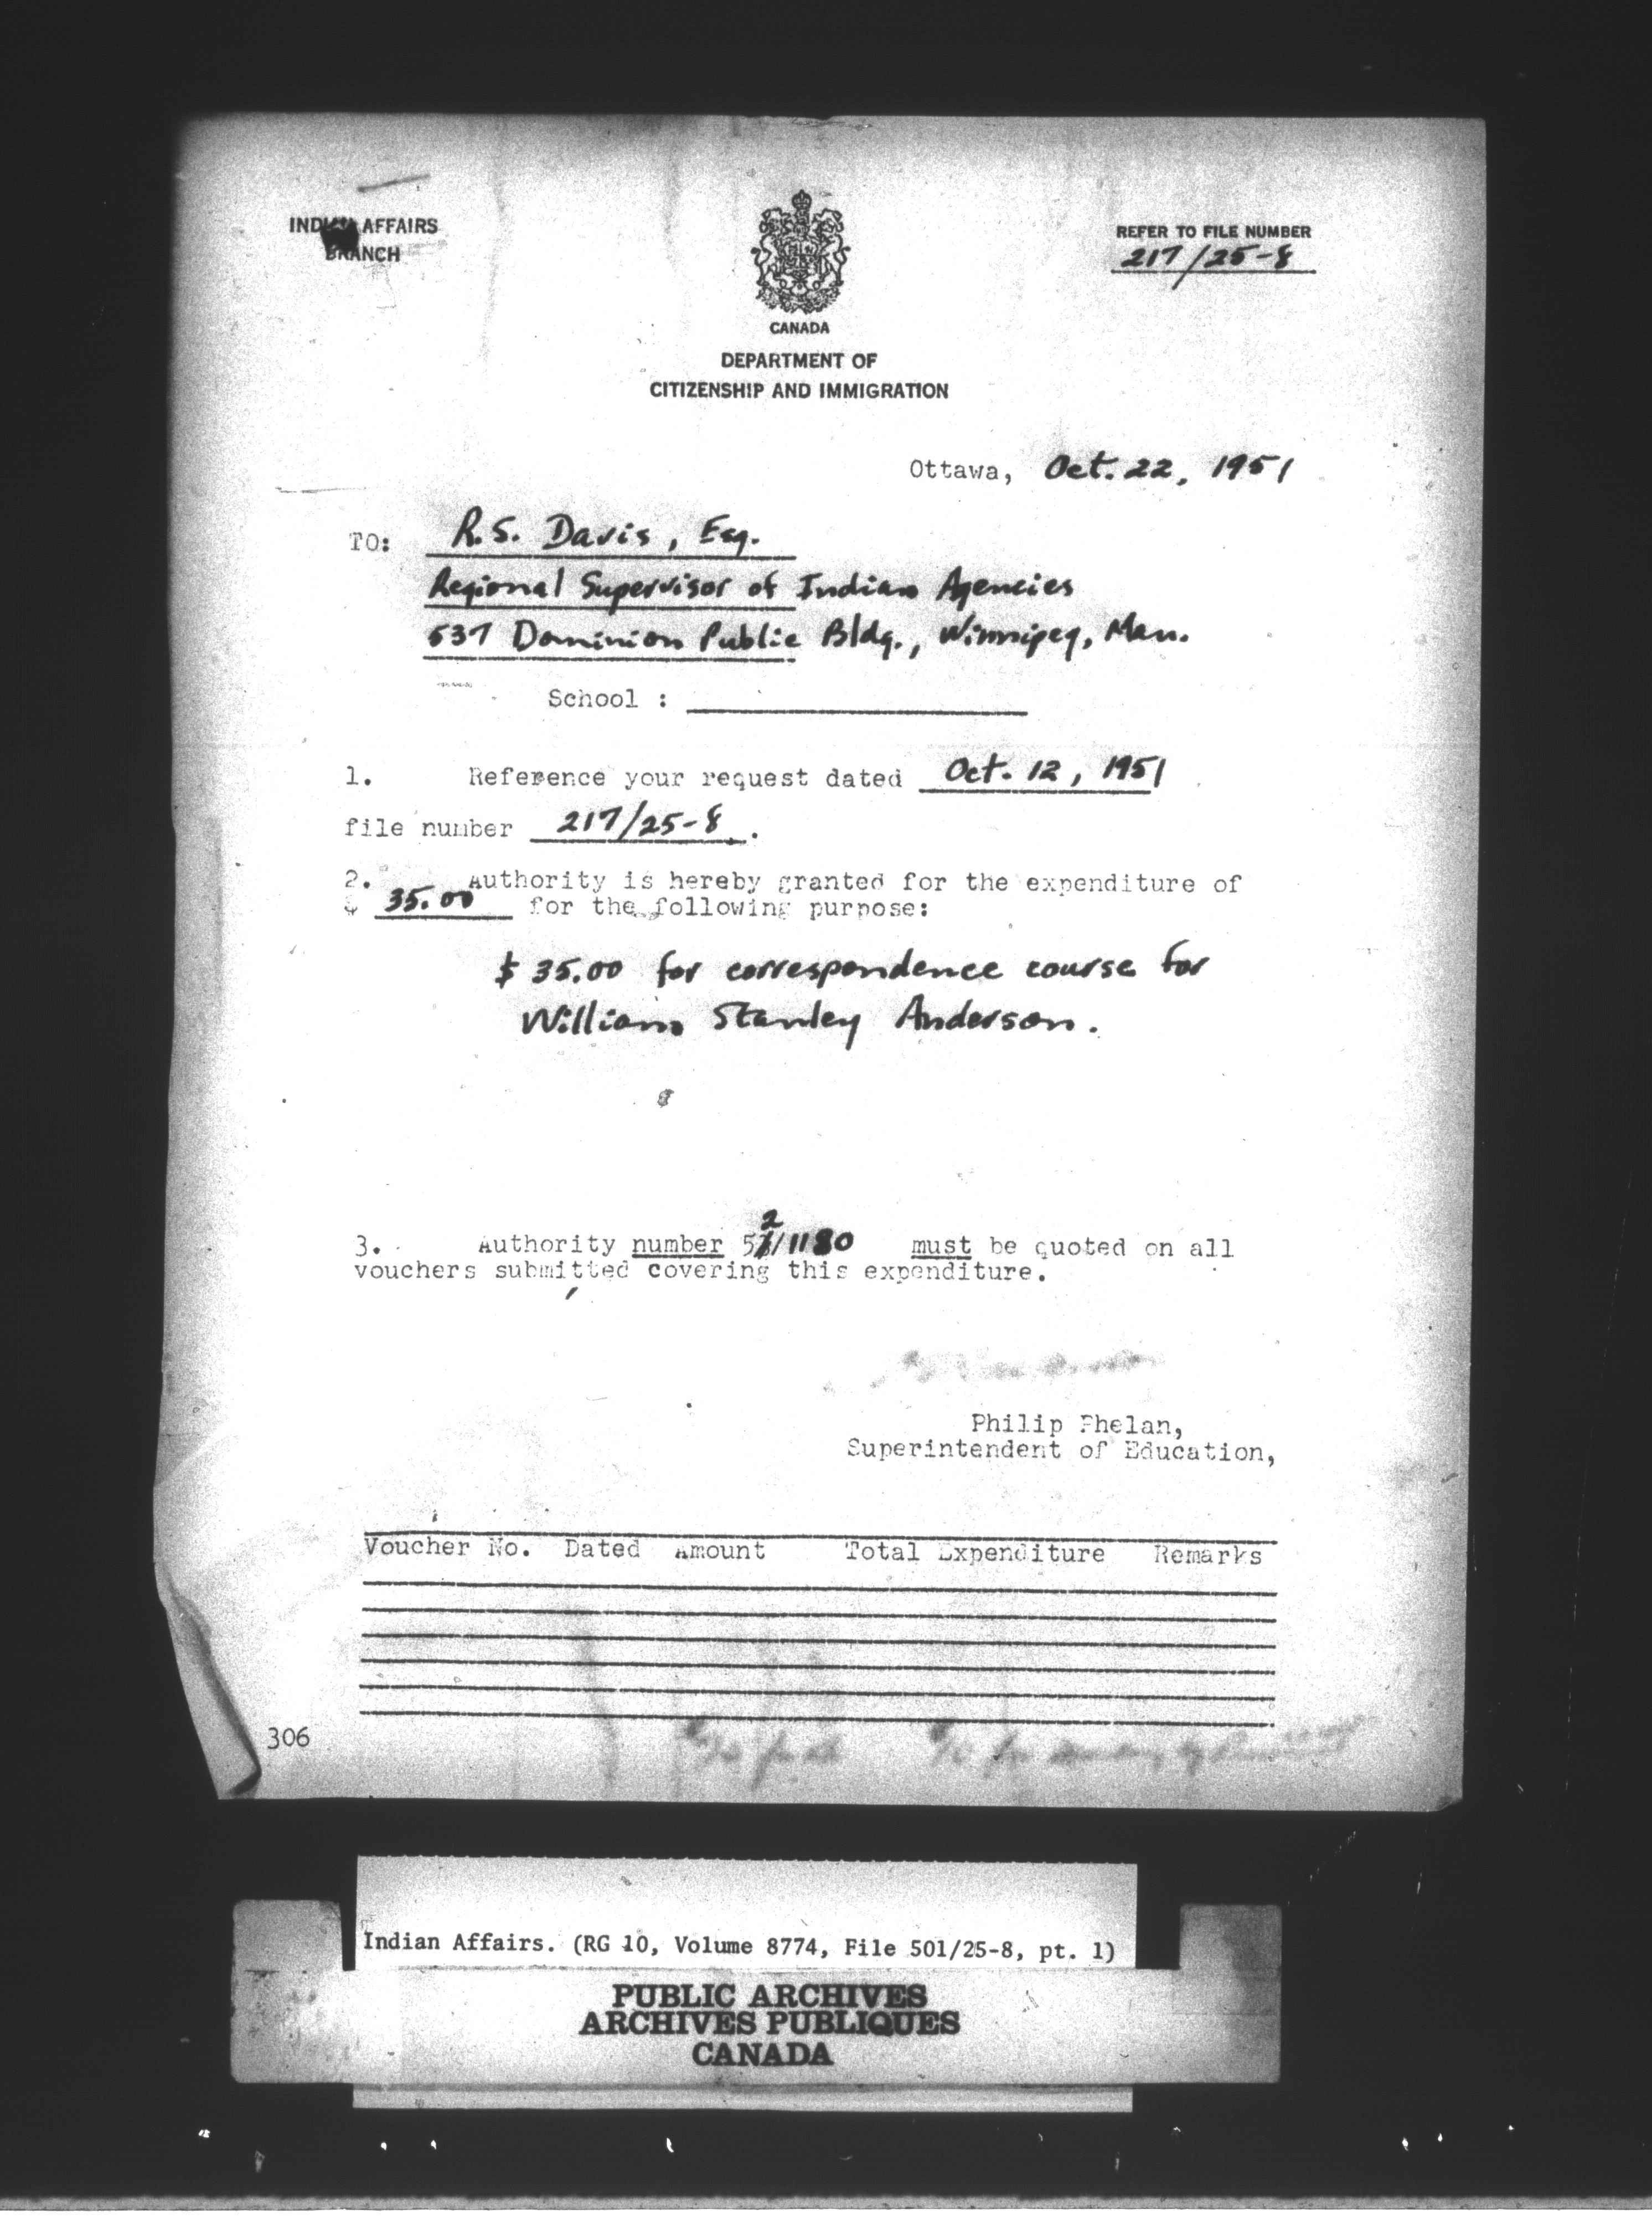 INDIAN AFFAIRS
BRANCH
REFER TO FILE NUMBER
217/25-8
CANADA
DEPARTMENT OF
CITIZENSHIP AND IMMIGRATION
Ottawa, Oct. 22, 1951
TO: R.S. Davis, Esq.
Regional Supervisor of Indian Agencies
537 Dominion Public Bldg., Winnipeg, Man.
School :
1. Reference your request dated Oct. 12, 1951
file number 217/25-8.
2. Authority is hereby granted for the expenditure of
$ 35.00 for the following purpose:
$35.00 for correspondence course for
William Stanley Anderson.
2
3. Authority number 5/1180 must be quoted on all
vouchers submitted covering this expenditure.
Philip Phelan,
Superintendent of Education,
Voucher No. Dated Amount Total Expenditure Remarks
306
Indian Affairs. (RG 10, Volume 8774, File 501/25-8, pt. 1)
PUBLIC ARCHIVES
ARCHIVES PUBLIQUES
CANADA